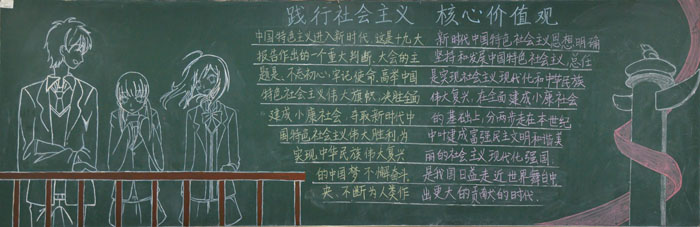 践行社会主义 核心价值观
中国特色主义进入新时代,这是十九大
报告作出的一个重大判断,大会的主
题是:不忘初心,牢记使命,高举中国
特色社会主义伟大旗帜,决胜全面
建成小康社会,夺取新时代中
国特色社会主义伟大胜利,为
实现中华民族伟大复兴
的中国梦不懈奋斗
央、不断为人类作
新时代中国特色社会主义思想明确
坚持和发展中国特色社会主义,总任
是实现社会主义现代化和中华民族
伟大复兴,在全面建成小康社会
的基础上,分两步走在本世纪
中叶建成富强民主文明和谐美
丽的社会主义现代化强国,
是我国日益走近世界舞台中
出更大的贡献的时代.